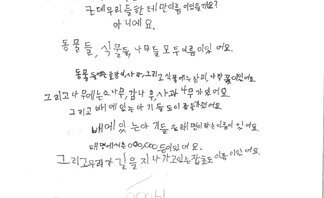 근데 우리들한테만 이름이 있을까요?
아니에요.
동물들, 식물들, 나무들 모두 이름이 있어요.
동물들에는 사자, 그리고 식물에는 장미, 나무 있어요.
그리고 나무에는 소나무, 감나무, 사과나무가 있어요
그리고 배에 있는 아기들도 이름 있어요
배에 있는 아기들을 태명이라는 이름이 있어요.
태명에서는 000,000 등이 있어요.
그리고 우리가 길을 지나가고 있는 잡초도 이름이 있어요.